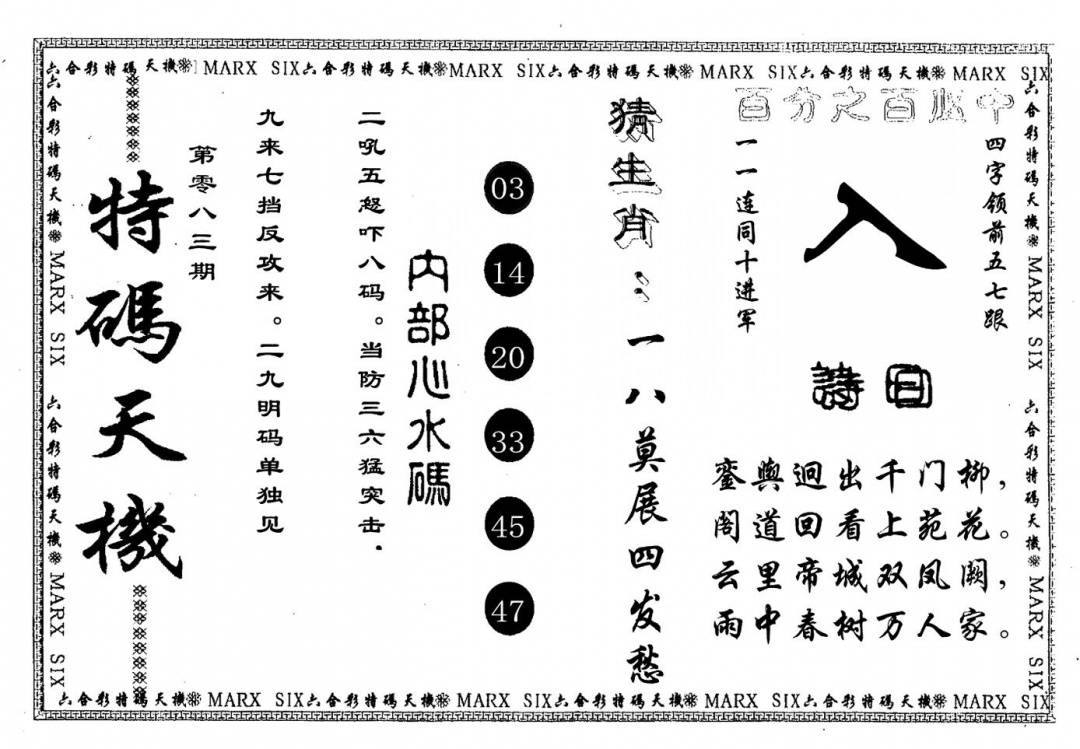 六合彩特碼天機 MARX SIX六合彩特碼天機MARX SIX六合彩特碼天機 MARX SIX六合彩特碼天機 MARX SIX
六合彩特碼天機 MARX SIX 六合彩特碼天機 MARX SIX
特碼天機
第零八三期
九来七挡反攻来。二九明码单独见
二吼五怒吓八码。当防三六猛突击.
内部心水碼
03
14
20
33
45
47
猜生肖:一八莫展四发愁
百分之百必中
四字领前五七跟
入
一一连同十进军
詩曰
銮與迥出千门柳，
阁道回看上苑花。
云里帝城双凤阙，
雨中春树万人家。
六合彩特碼天機 MARX SIX 六合彩特碼天機 MARX SIX
六合彩特碼天機 MARX SIX六合彩特碼天機 MARX SIX六合彩特碼天機 MARX SIX六合彩特碼天機 MARX SIX